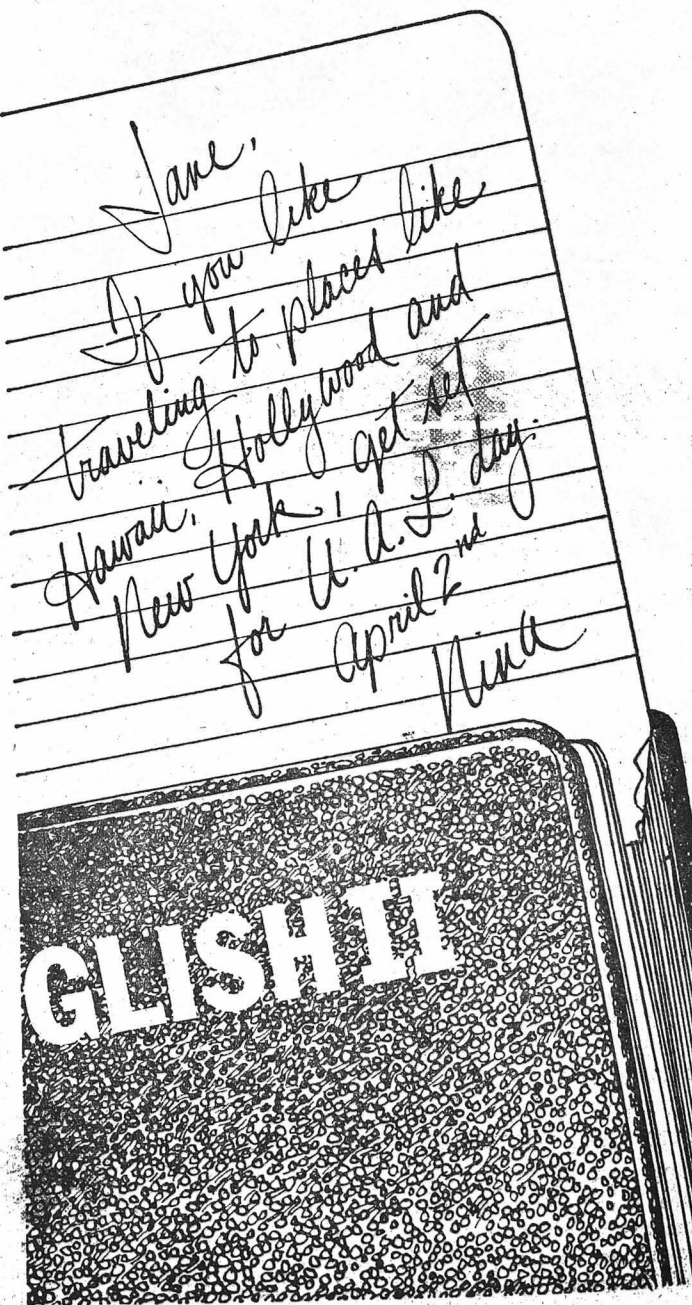 Jane,
If you like
traveling to places like
Hawaii, Hollywood and
New York, get set
for U.A.L. day.
April 2nd
Nina
GLISH II